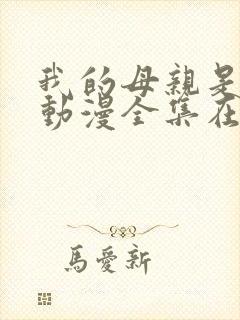 我的母親是
動漫全集在
馬愛新